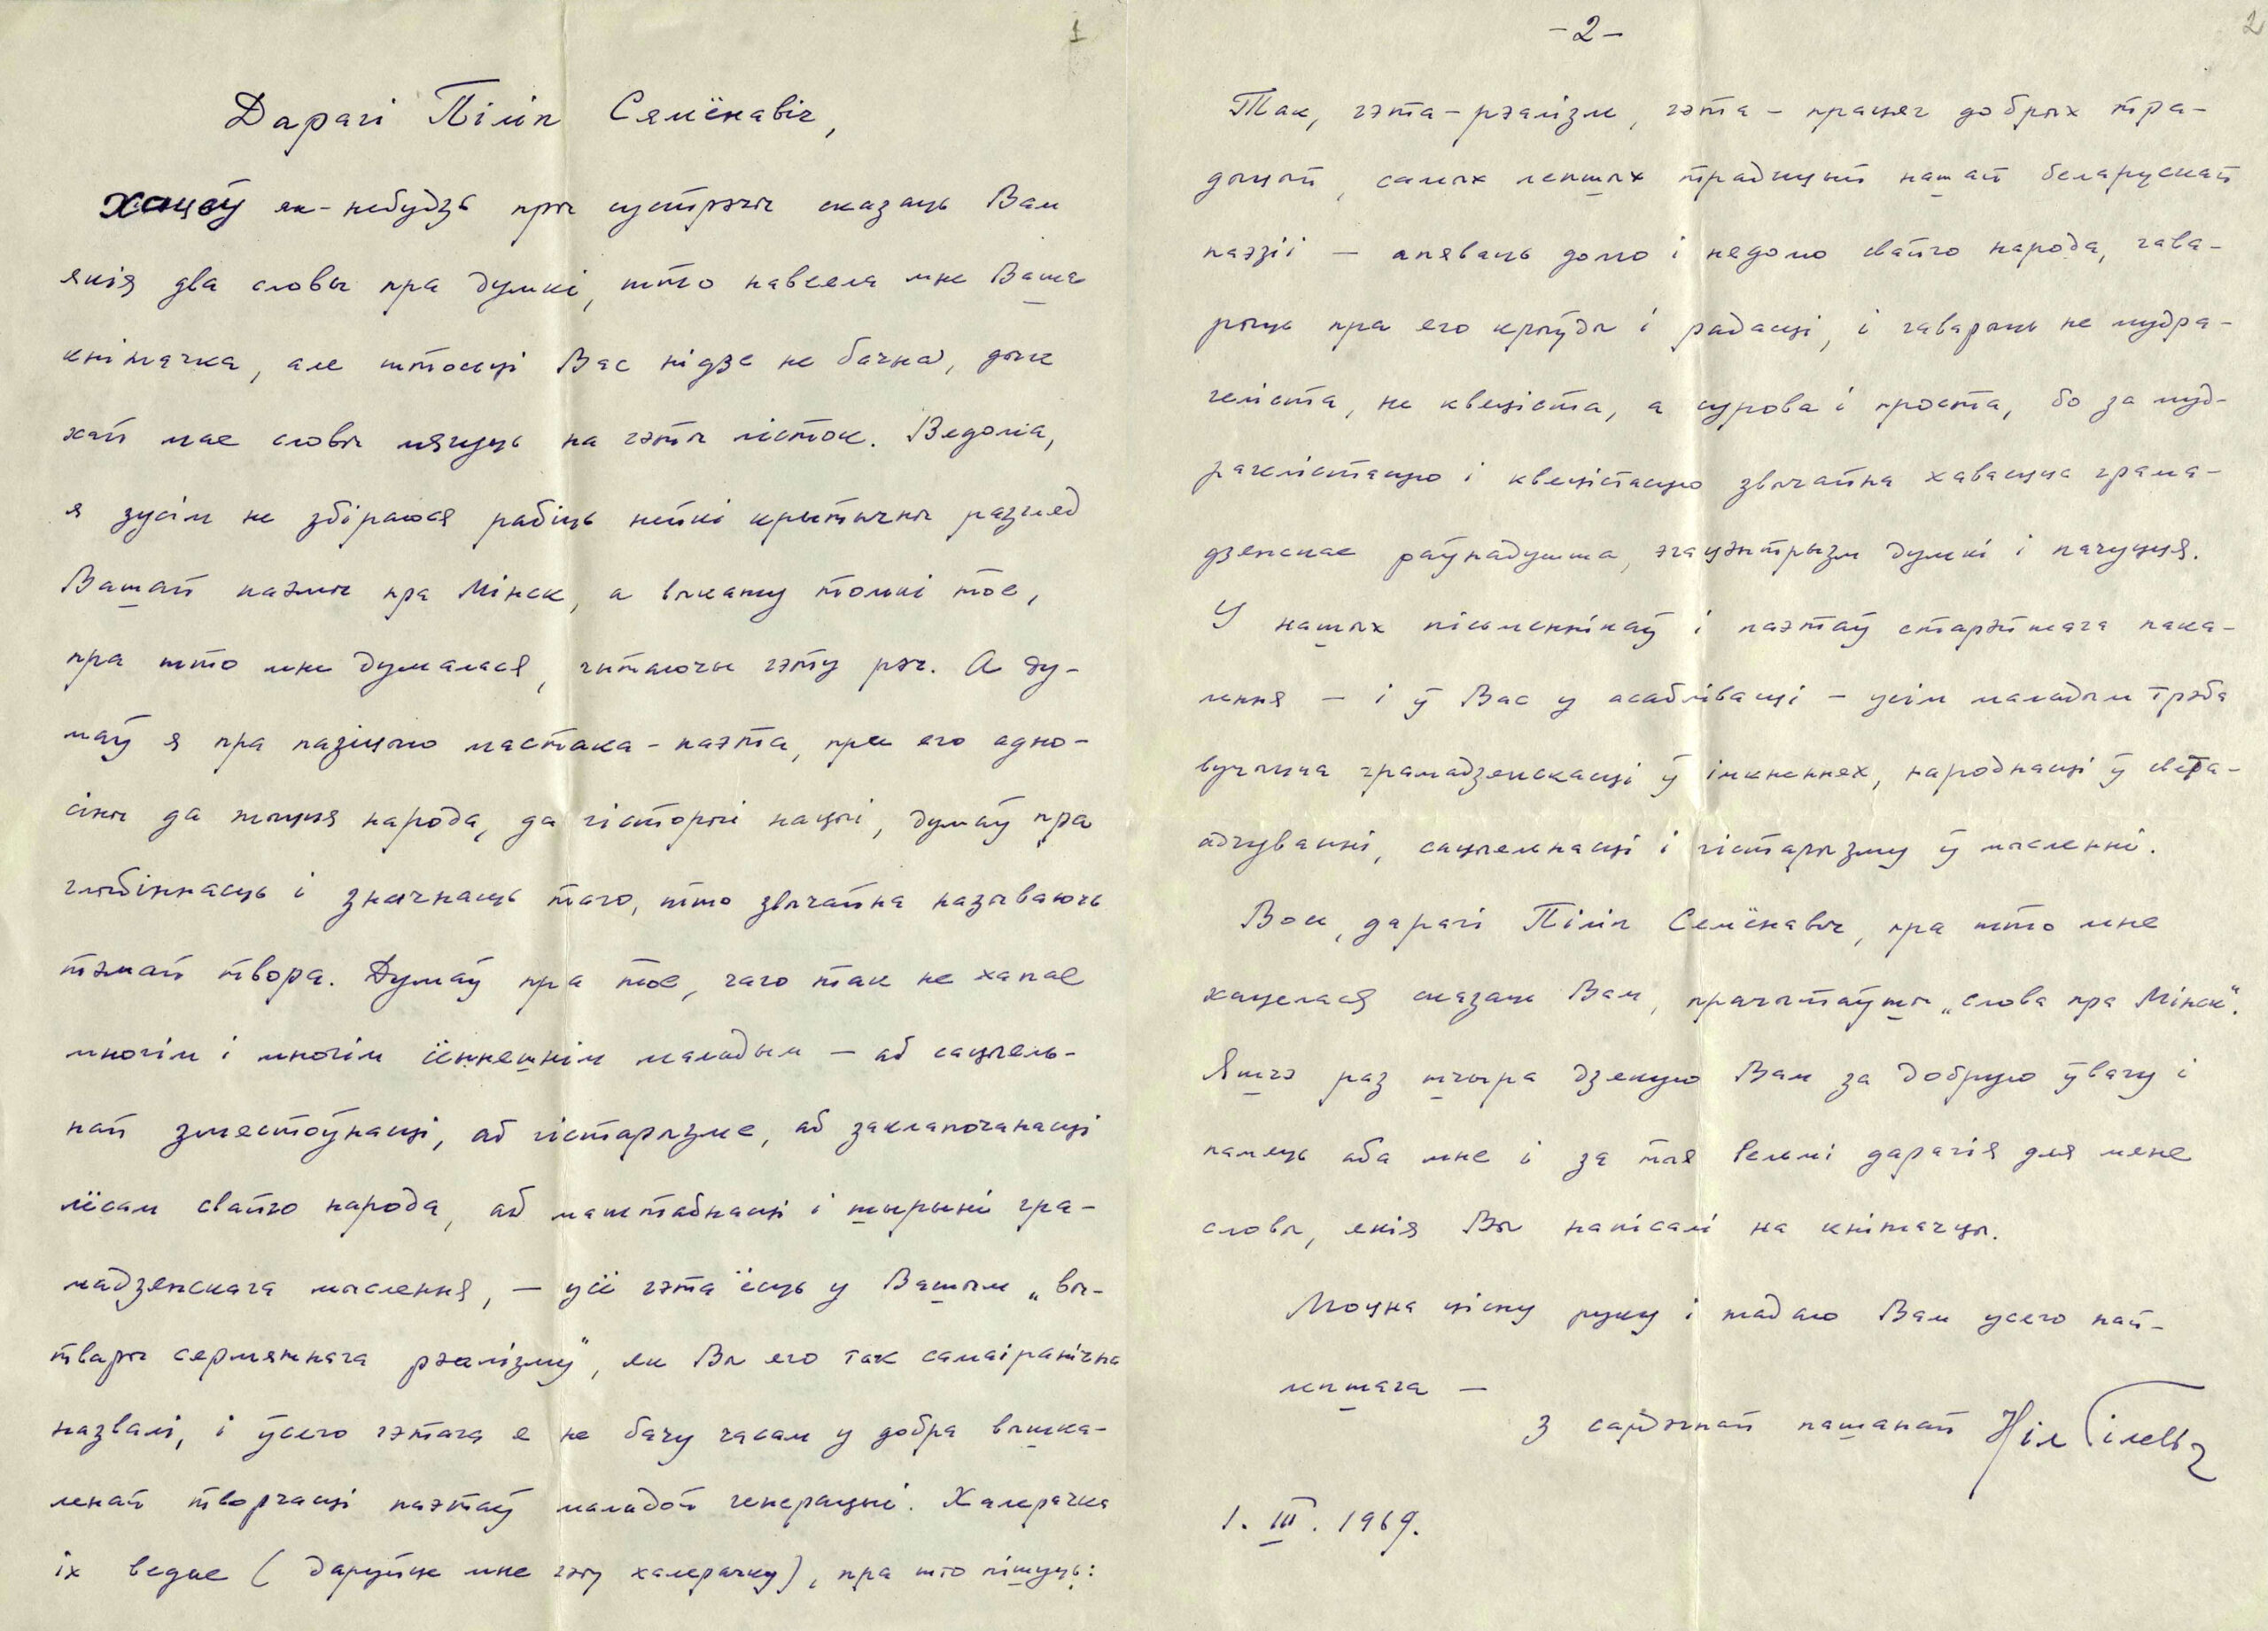 1
Дарагі Піліп Сямёнавіч,
Хацеў як-небудзь пры сустрэчы сказаць Вам
якія два словы пра думкі, што навеяла мне Ваша
кніжачка, але штосьці Вас нідзе не бачна, дык
хай мае словы лягуць на гэты лісток. Вядома,
я зусім не збіраюся рабіць нейкі крытычны разгляд
Вашай паэмы пра Мінск, а выкажу толькі тое,
пра што мне думалася, чытаючы гэту рэч. А ду-
маў я пра пазіцыю мастака-паэта, пра яго адно-
сіны да жыцця народа, да гісторыі нацыі, думаў пра
глыбіннасць і значнасць таго, што звычайна называюць
тэмай твора. Думаў пра тое, чаго так не хапае
многім і многім ённешнім маладым — аб сацыяль-
най змястоўнасці, аб гістарызме, аб заклапочанасці
лёсам свайго народа, аб маштабнасці і шырыні гра-
мадзянскага мыслення, — усё гэта ёсць у Вашым „вы-
твары сярмяжнага рэалізму", як Вы яго так самаіранічна
назвалі, і ўсяго гэтага я не бачу часам у добра вышка-
ленай творчасці паэтаў маладой генерацыі. Халерачка
іх ведае (даруйце мне гэту халерачку), пра што пішуць:
2
-2-
Так, гэта-рэалізм, гэта - працяг добрых тра-
дыцый, самых лепшых традыцый нашай беларускай
паэзіі — апяваць долю і нядолю свайго народа, гава-
рыць пра яго крыўды і радасці, і гаварыць не мудра-
геліста, не квяціста, а сурова і проста, бо за муд-
рагелістасцю і квяцістасцю звычайна хаваецца грама-
дзянскае раўнадушша, эгацэнтрызм думкі і пачуцця.
У нашых пісьменнікаў і паэтаў старэйшага пака-
лення — і ў Вас у асаблівасці — усім маладым трэба
вучыцца грамадзянскасці ў імкненнях, народнасці ў света-
адчуванні, сацыяльнасці і гістарызму ў мысленні.
Вось, дарагі Піліп Сямёнавіч, пра што мне
хацелася сказаць Вам, прачытаўшы „Слова пра Мінск".
Яшчэ раз шчыра дзякую Вам за добрую ўвагу і
памяць аба мне і за тыя вельмі дарагія для мяне
словы, якія Вы напісалі на кніжачцы.
Моцна цісну руку і жадаю Вам усяго най-
лепшага —
З сардэчнай пашанай Ніл Гілевіч
1. III. 1969.